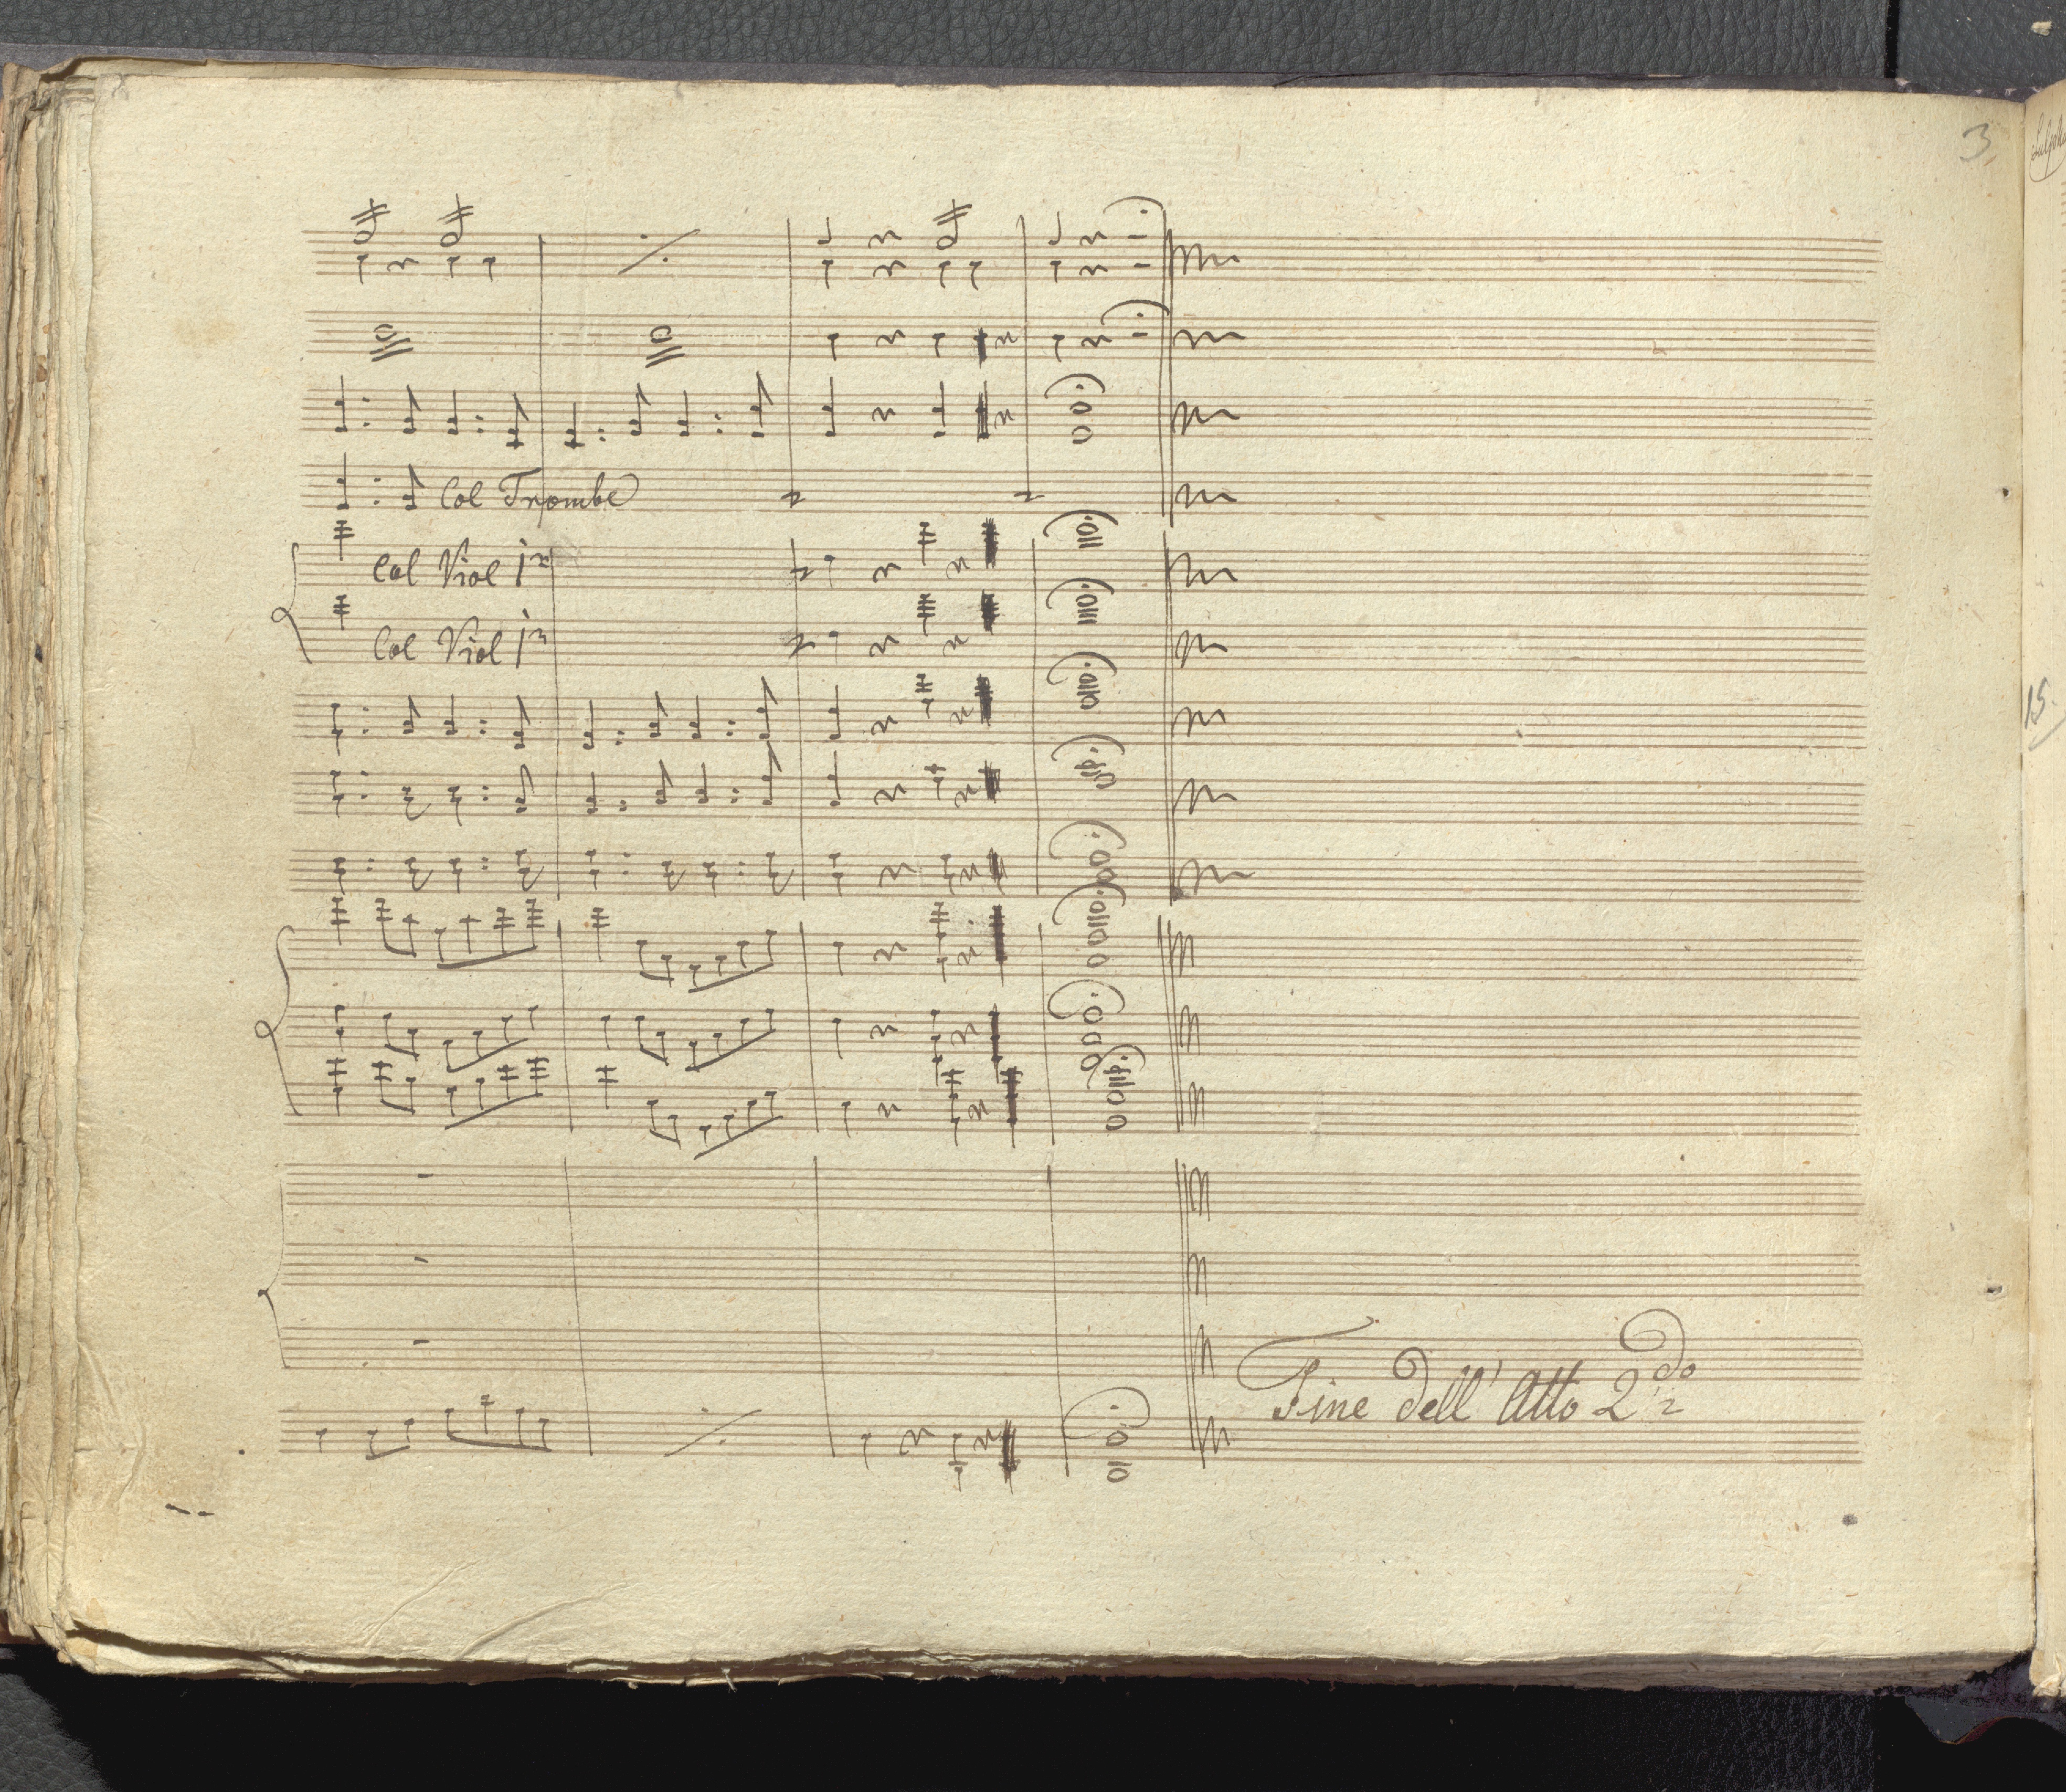 3.
Col Trombe
Col Viol 1º
Col Viol 1º
15.
Fine dell' Atto 2do